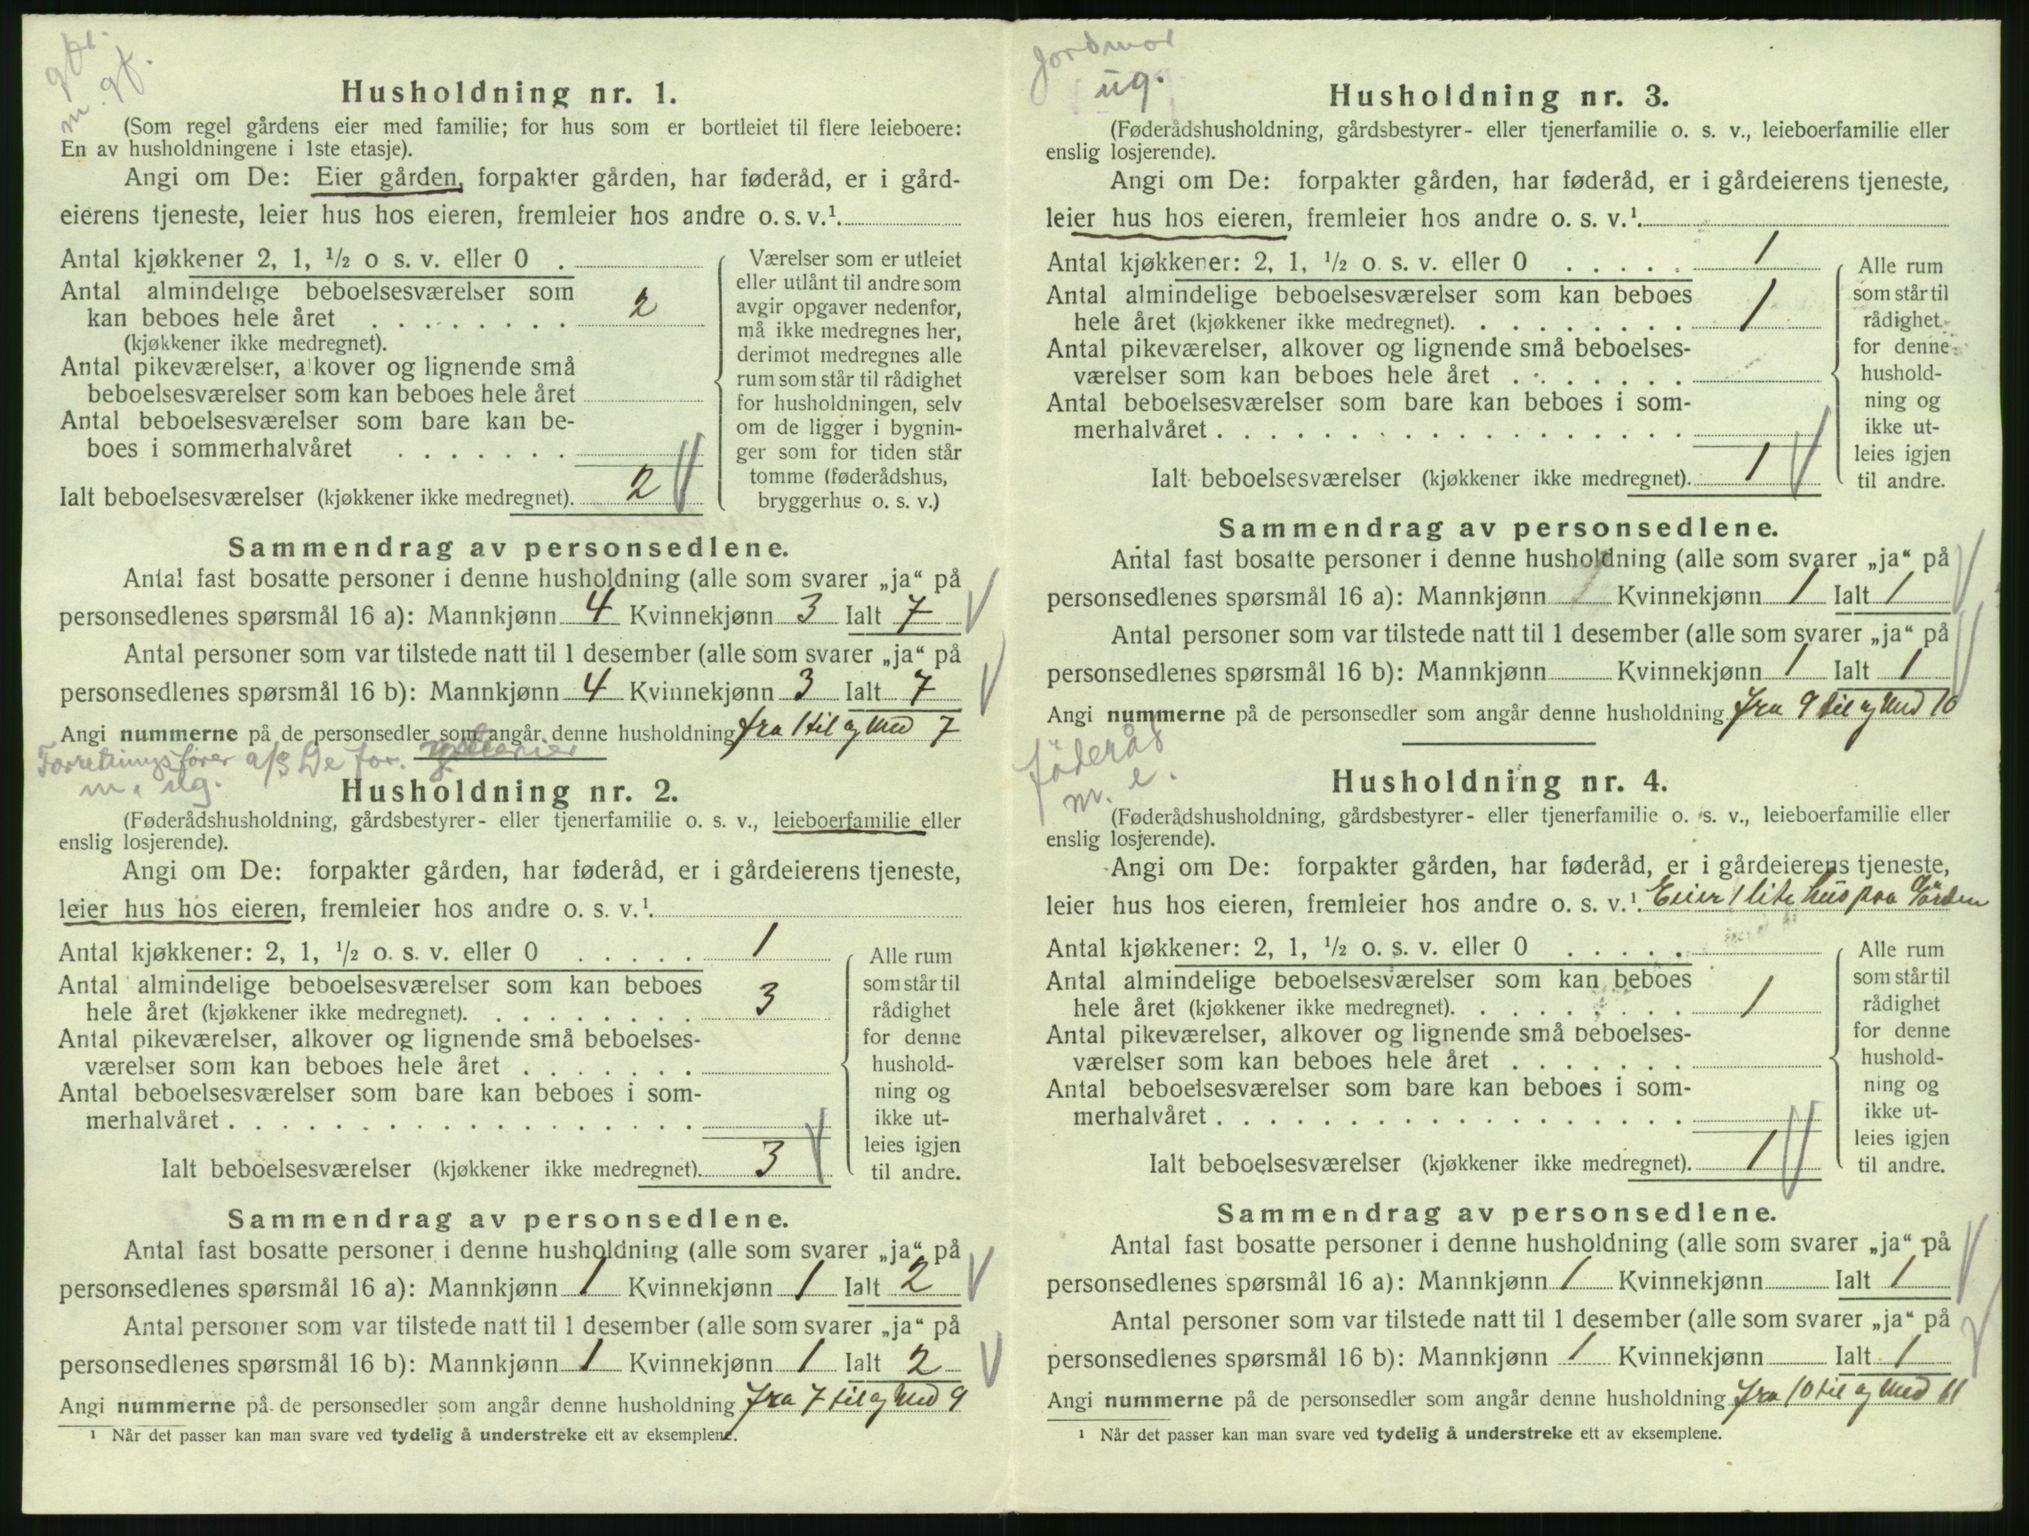 gbr.
m. gf.
Husholdning nr. 1.
(Som regel gårdens eier med familie; for hus som er bortleiet til flere leieboere:
En av husholdningene i 1ste etasje).
Angi om De: Eier gården, forpakter gården, har føderåd, er i gård-
eierens tjeneste, leier hus hos eieren, fremleier hos andre o. s. v.¹
Antal kjøkkener 2, 1, ½ o s. v. eller 0 .
Antal almindelige beboelsesværelser som
kan beboes hele året . . . . . . . . 2
(kjøkkener ikke medregnet).
Antal pikeværelser, alkover og lignende små
beboelsesværelser som kan beboes hele året
Antal beboelsesværelser som bare kan be-
boes i sommerhalvåret . . . . . . .
Ialt beboelsesværelser (kjøkkener ikke medregnet). 2
Værelser som er utleiet
eller utlånt til andre som
avgir opgaver nedenfor,
må ikke medregnes her,
derimot medregnes alle
rum som står til rådighet
for husholdningen, selv
om de ligger i bygnin-
ger som for tiden står
tomme (føderådshus,
bryggerhus o. s. v.)
Sammendrag av personsedlene.
Antal fast bosatte personer i denne husholdning (alle som svarer „ja“ på
personsedlenes spørsmål 16 a): Mannkjønn 4 Kvinnekjønn 3 Ialt 7
Antal personer som var tilstede natt til 1 desember (alle som svarer „ja“ på
personsedlenes spørsmål 16 b): Mannkjønn 4 Kvinnekjønn 3 Ialt 7
Angi nummerne på de personsedler som angår denne husholdning fra 1 til og med 7
Forretningsfører a/s De for.
m. ug.
Husholdning nr. 2.
(Føderådshusholdning, gårdsbestyrer- eller tjenerfamilie o. s. v., leieboerfamilie eller
enslig losjerende).
Angi om De: forpakter gården, har føderåd, er i gårdeierens tjeneste,
leier hus hos eieren, fremleier hos andre o. s. v.¹
Antal kjøkkener: 2, 1, ½ o. s. v. eller 0 . . . . . 1
Antal almindelige beboelsesværelser som kan beboes
hele året (kjøkkener ikke medregnet). . . . . . . . . 3
Antal pikeværelser, alkover og lignende små beboelses-
værelser som kan beboes hele året . . . . . . .
Antal beboelsesværelser som bare kan beboes i som-
merhalvåret . . . . . . . . . . . . . . . . . .
Ialt beboelsesværelser (kjøkkener ikke medregnet). 3
Alle rum
som står til
rådighet
for denne
hushold-
ning og
ikke ut-
leies igjen
til andre.
Sammendrag av personsedlene.
Antal fast bosatte personer i denne husholdning (alle som svarer „ja“ på
personsedlenes spørsmål 16 a): Mannkjønn 1 Kvinnekjønn 1 Ialt 2
Antal personer som var tilstede natt til 1 desember (alle som svarer „ja“ på
personsedlenes spørsmål 16 b): Mannkjønn 1 Kvinnekjønn 1 Ialt 2
Angi nummerne på de personsedler som angår denne husholdning fra 7 til og med 9
¹ Når det passer kan man svare ved tydelig å understreke ett av eksemplene.
Jordmor
ug.
Husholdning nr. 3.
(Føderådshusholdning, gårdsbestyrer- eller tjenerfamilie o. s. v., leieboerfamilie eller
enslig losjerende).
Angi om De: forpakter gården, har føderåd, er i gårdeierens tjeneste,
leier hus hos eieren, fremleier hos andre o. s. v.¹
Antal kjøkkener: 2, 1, ½ o. s. v. eller 0 . . . . . 1
Antal almindelige beboelsesværelser som kan beboes
hele året (kjøkkener ikke medregnet). . . . . . . . . 1
Antal pikeværelser, alkover og lignende små beboelses-
værelser som kan beboes hele året . . . . . . .
Antal beboelsesværelser som bare kan beboes i som-
merhalvåret . . . . . . . . . . . . . . . . . .
Ialt beboelsesværelser (kjøkkener ikke medregnet). 1
Alle rum
som står til
rådighet
for denne
hushold-
ning og
ikke ut-
leies igjen
til andre.
Sammendrag av personsedlene.
Antal fast bosatte personer i denne husholdning (alle som svarer „ja“ på
personsedlenes spørsmål 16 a): Mannkjønn Kvinnekjønn 1 Ialt 1
Antal personer som var tilstede natt til 1 desember (alle som svarer „ja“ på
personsedlenes spørsmål 16 b): Mannkjønn Kvinnekjønn 1 Ialt 1
Angi nummerne på de personsedler som angår denne husholdning fra 9 til og med 10
føderås
m. e.
Husholdning nr. 4.
(Føderådshusholdning, gårdsbestyrer- eller tjenerfamilie o. s. v., leieboerfamilie eller
enslig losjerende).
Angi om De: forpakter gården, har føderåd, er i gårdeierens tjeneste,
leier hus hos eieren, fremleier hos andre o. s. v.¹ Eier 1 lite hus paa Gården
Antal kjøkkener: 2, 1, ½ o. s. v. eller 0 . . . . .
Antal almindelige beboelsesværelser som kan beboes
hele året (kjøkkener ikke medregnet). . . . . . . . . 1
Antal pikeværelser, alkover og lignende små beboelses-
værelser som kan beboes hele året . . . . . . .
Antal beboelsesværelser som bare kan beboes i som-
merhalvåret . . . . . . . . . . . . . . . . . .
Ialt beboelsesværelser (kjøkkener ikke medregnet). 1
Alle rum
som står til
rådighet
for denne
hushold-
ning og
ikke ut-
leies igjen
til andre.
Sammendrag av personsedlene.
Antal fast bosatte personer i denne husholdning (alle som svarer „ja“ på
personsedlenes spørsmål 16 a): Mannkjønn 1 Kvinnekjønn Ialt 1
Antal personer som var tilstede natt til 1 desember (alle som svarer „ja“ på
personsedlenes spørsmål 16 b): Mannkjønn 1 Kvinnekjønn Ialt 1
Angi nummerne på de personsedler som angår denne husholdning fra 10 til og med 11
¹ Når det passer kan man svare ved tydelig å understreke ett av eksemplene.